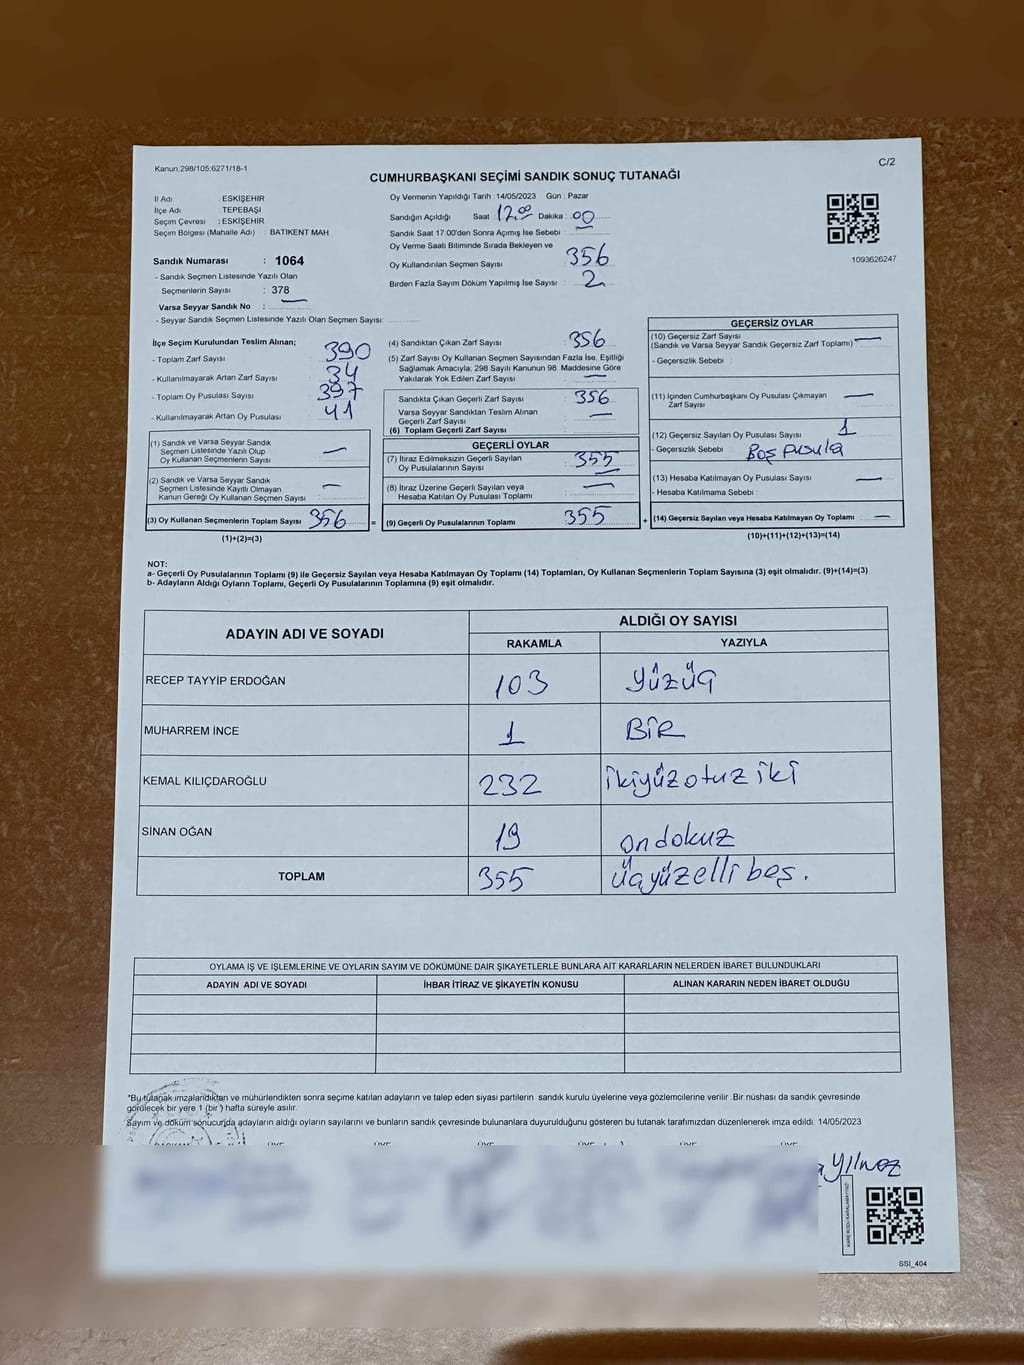 Kanun:298/105;6271/18-1
C/2
CUMHURBAŞKANI SEÇİMİ SANDIK SONUÇ TUTANAĞI
İl Adı : ESKİŞEHİR
İlçe Adı : TEPEBAŞI
Seçim Çevresi : ESKİŞEHİR
Seçim Bölgesi (Mahalle Adı) : BATIKENT MAH.
Sandık Numarası : 1064
- Sandık Seçmen Listesinde Yazılı Olan
Seçmenlerin Sayısı : 378
Varsa Seyyar Sandık No : —
- Seyyar Sandık Seçmen Listesinde Yazılı Olan Seçmen Sayısı:
Oy Vermenin Yapıldığı Tarih : 14/05/2023 Gün : Pazar
Sandığın Açıldığı Saat : 17.00 Dakika : 00
Sandık Saat 17:00'den Sonra Açımış İse Sebebi :
Oy Verme Saati Bitiminde Sırada Bekleyen ve
Oy Kullandırılan Seçmen Sayısı : 356
Birden Fazla Sayım Döküm Yapılmış İse Sayısı : 2
1093626247
İlçe Seçim Kurulundan Teslim Alınan;
- Toplam Zarf Sayısı : 390
- Kullanılmayarak Artan Zarf Sayısı : 34
- Toplam Oy Pusulası Sayısı : 397
- Kullanılmayarak Artan Oy Pusulası : 41
(1) Sandık ve Varsa Seyyar Sandık
Seçmen Listesinde Yazılı Olup
Oy Kullanan Seçmenlerin Sayısı : —
(2) Sandık ve Varsa Seyyar Sandık
Seçmen Listesinde Kayıtlı Olmayan
Kanun Gereği Oy Kullanan Seçmen Sayısı : —
(3) Oy Kullanan Seçmenlerin Toplam Sayısı : 356 =
(1)+(2)=(3)
(4) Sandıktan Çıkan Zarf Sayısı : 356
(5) Zarf Sayısı Oy Kullanan Seçmen Sayısından Fazla İse, Eşitliği
Sağlamak Amacıyla; 298 Sayılı Kanunun 98. Maddesine Göre
Yakılarak Yok Edilen Zarf Sayısı : —
Sandıkta Çıkan Geçerli Zarf Sayısı : 356
Varsa Seyyar Sandıktan Teslim Alınan
Geçerli Zarf Sayısı : —
(6) Toplam Geçerli Zarf Sayısı :
GEÇERLİ OYLAR
(7) İtiraz Edilmeksizin Geçerli Sayılan
Oy Pusulalarının Sayısı : 355
(8) İtiraz Üzerine Geçerli Sayılan veya
Hesaba Katılan Oy Pusulası Toplamı : —
(9) Geçerli Oy Pusulalarının Toplamı : 355 +
GEÇERSİZ OYLAR
(10) Geçersiz Zarf Sayısı
(Sandık ve Varsa Seyyar Sandık Geçersiz Zarf Toplamı) : —
- Geçersizlik Sebebi :
(11) İçinden Cumhurbaşkanı Oy Pusulası Çıkmayan
Zarf Sayısı : —
(12) Geçersiz Sayılan Oy Pusulası Sayısı : 1
- Geçersizlik Sebebi : Boş pusula
(13) Hesaba Katılmayan Oy Pusulası Sayısı : —
- Hesaba Katılmama Sebebi :
(14) Geçersiz Sayılan veya Hesaba Katılmayan Oy Toplamı : —
(10)+(11)+(12)+(13)=(14)
NOT:
a- Geçerli Oy Pusulalarının Toplamı (9) ile Geçersiz Sayılan veya Hesaba Katılmayan Oy Toplamı (14) Toplamları, Oy Kullanan Seçmenlerin Toplam Sayısına (3) eşit olmalıdır. (9)+(14)=(3)
b- Adayların Aldığı Oyların Toplamı, Geçerli Oy Pusulalarının Toplamına (9) eşit olmalıdır.
ADAYIN ADI VE SOYADI
ALDIĞI OY SAYISI
RAKAMLA YAZIYLA
RECEP TAYYİP ERDOĞAN 103 yüzüç
MUHARREM İNCE 1 BİR
KEMAL KILIÇDAROĞLU 232 ikiyüzotuziki
SİNAN OĞAN 19 ondokuz
TOPLAM 355 üçyüzellibeş.
OYLAMA İŞ VE İŞLEMLERİNE VE OYLARIN SAYIM VE DÖKÜMÜNE DAİR ŞİKAYETLERLE BUNLARA AİT KARARLARIN NELERDEN İBARET BULUNDUKLARI
ADAYIN ADI VE SOYADI İHBAR İTİRAZ VE ŞİKAYETİN KONUSU ALINAN KARARIN NEDEN İBARET OLDUĞU
*Bu tutanak imzalandıktan ve mühürlendikten sonra seçime katılan adayların ve talep eden siyasi partilerin sandık kurulu üyelerine veya gözlemcilerine verilir .Bir nüshası da sandık çevresinde
görülecek bir yere 1 (bir ) hafta süreyle asılır.
Sayım ve döküm sonucunda adayların aldığı oyların sayılarını ve bunların sandık çevresinde bulunanlara duyurulduğunu gösteren bu tutanak tarafımızdan düzenlenerek imza edildi. 14/05/2023
Yılmaz
SSI_404